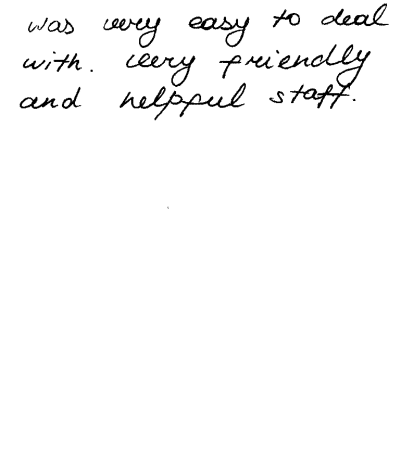 was very easy to deal
with. very friendly
and helpful staff.